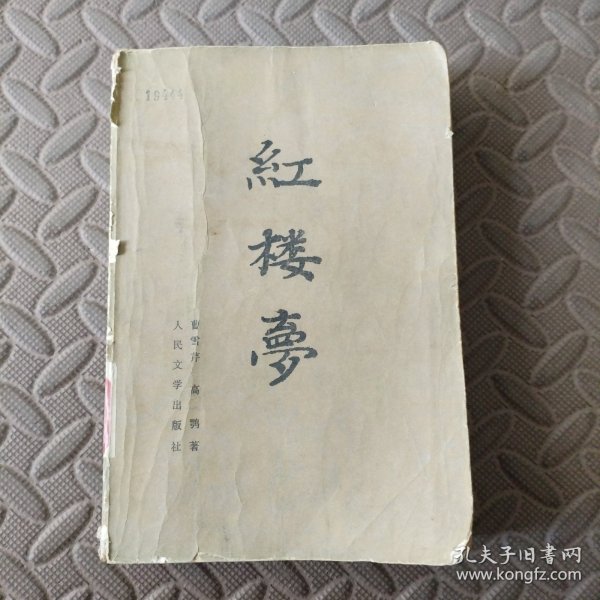 红楼夢
曹雪芹 高鹗著
人民文学出版社
孔夫子旧书网
www.kongfz.com